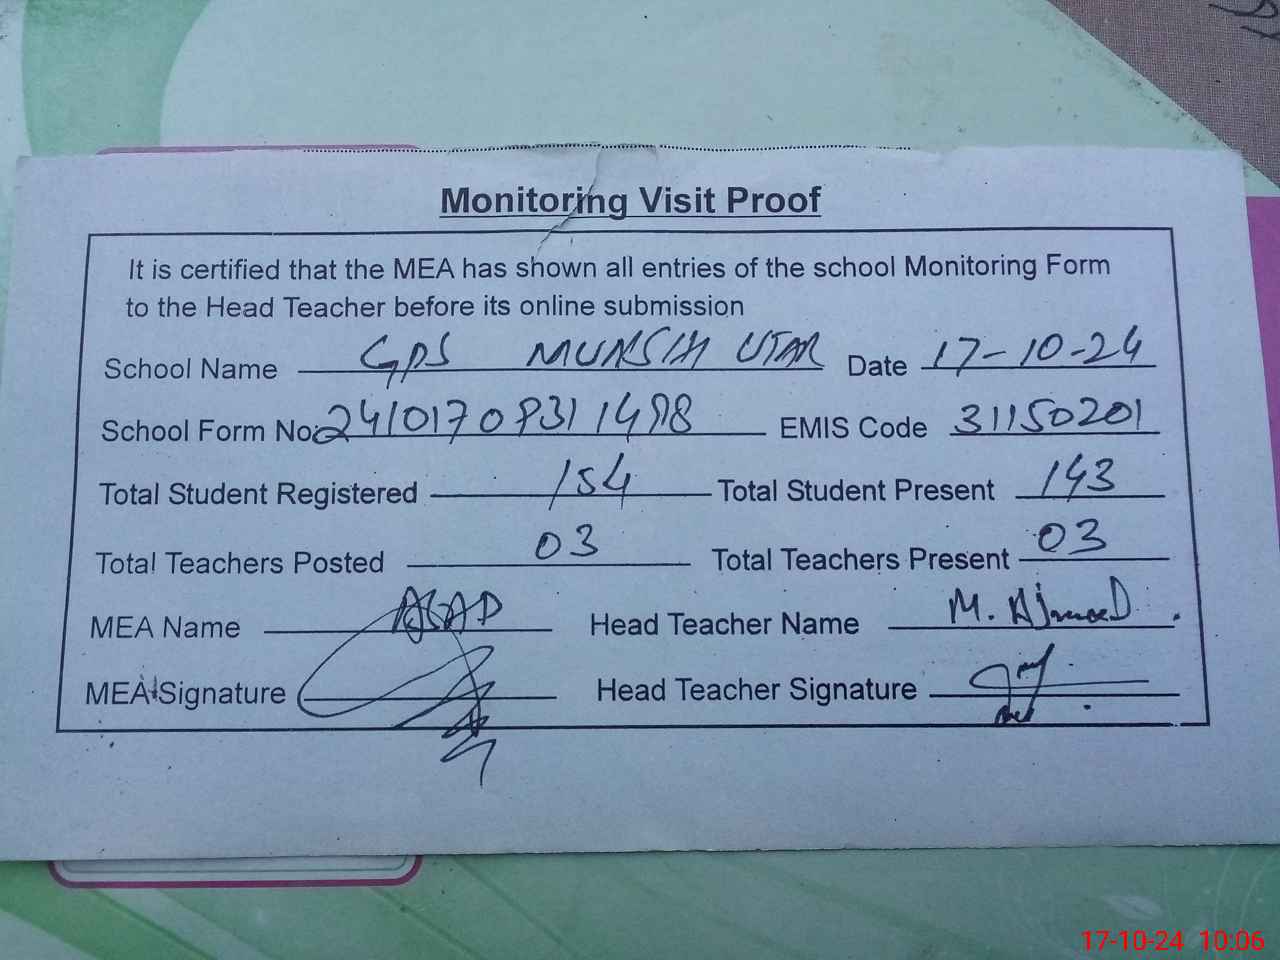 Monitoring Visit Proof
It is certified that the MEA has shown all entries of the school Monitoring Form
to the Head Teacher before its online submission
School Name GPS MUNSHI UTAR Date 17-10-24
School Form No: EMIS Code 31150201
Total Student Registered 154 Total Student Present 143
Total Teachers Posted 03 Total Teachers Present 03
MEA Name ASAD Head Teacher Name M. Ajmal
MEA Signature Head Teacher Signature
17-10-24 10:06